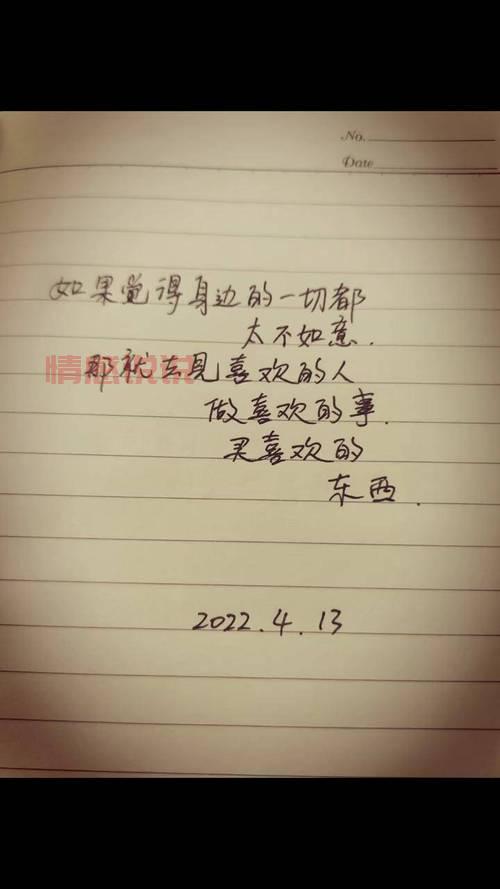 No.
Date
如果觉得身边的一切都
太不如意.
那就去见喜欢的人
情感说说
做喜欢的事.
买喜欢的
东西.
2022.4.13